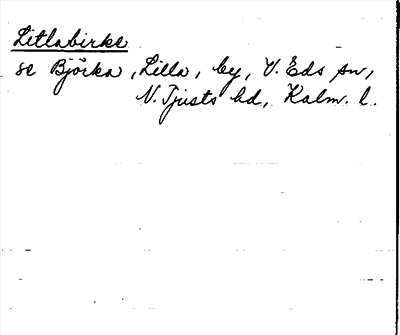 Litlabirke
se Björka, Lilla, by, V. Eds sn,
N. Tjusts hd, Kalm. l.